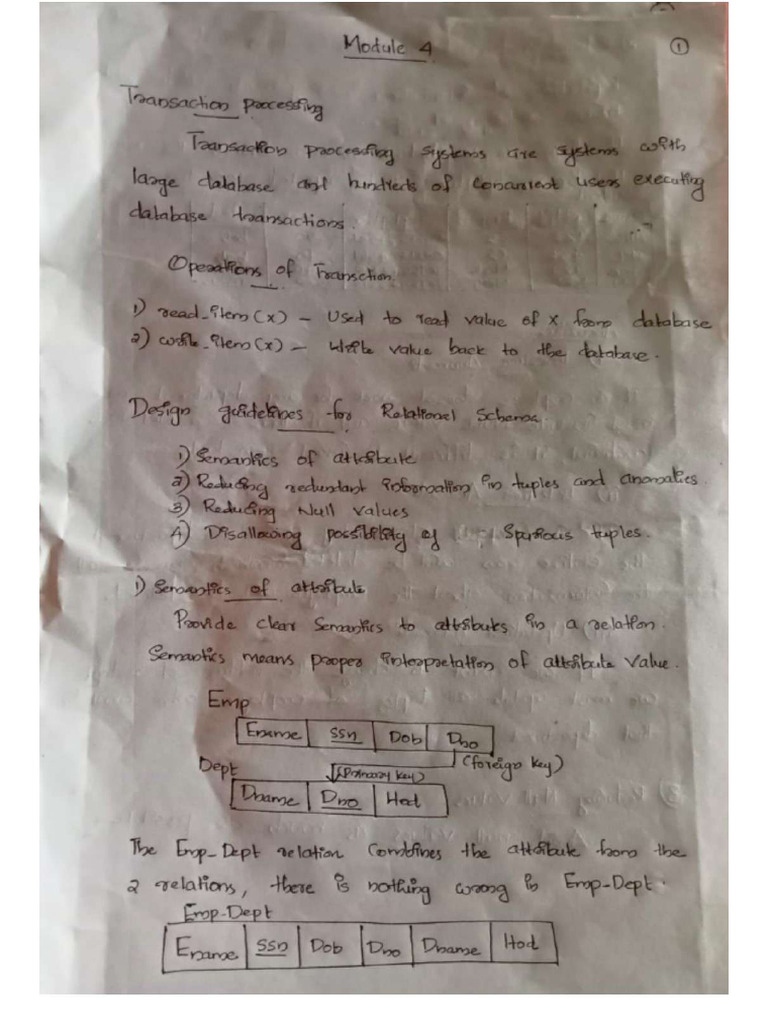 Module 4
1
Transaction processing
Transaction processing systems are systems with
large database and hundreds of concurrent users executing
database transactions.
Operations of Transction
1) read_item(x) - Used to read value of x from database
2) write_item(x) - Write value back to the database.
Design guidelines for Relational Schema.
1) Semantics of attribute
2) Reducing redundant information in tuples and anomalies.
3) Reducing Null values
4) Disallowing possibility of Spurious tuples.
1) Semantics of attribute
Provide clear Semantics to attributes in a relation.
Semantics means proper interpretation of attribute value.
Emp
Ename Ssn Dob Dno
(foreign key)
Dept
(Primary key)
Dname Dno Hod
The Emp_Dept relation combines the attribute from the
2 relations, there is nothing wrong in Emp-Dept.
Emp-Dept
Ename SSn Dob Dno Dname Hod